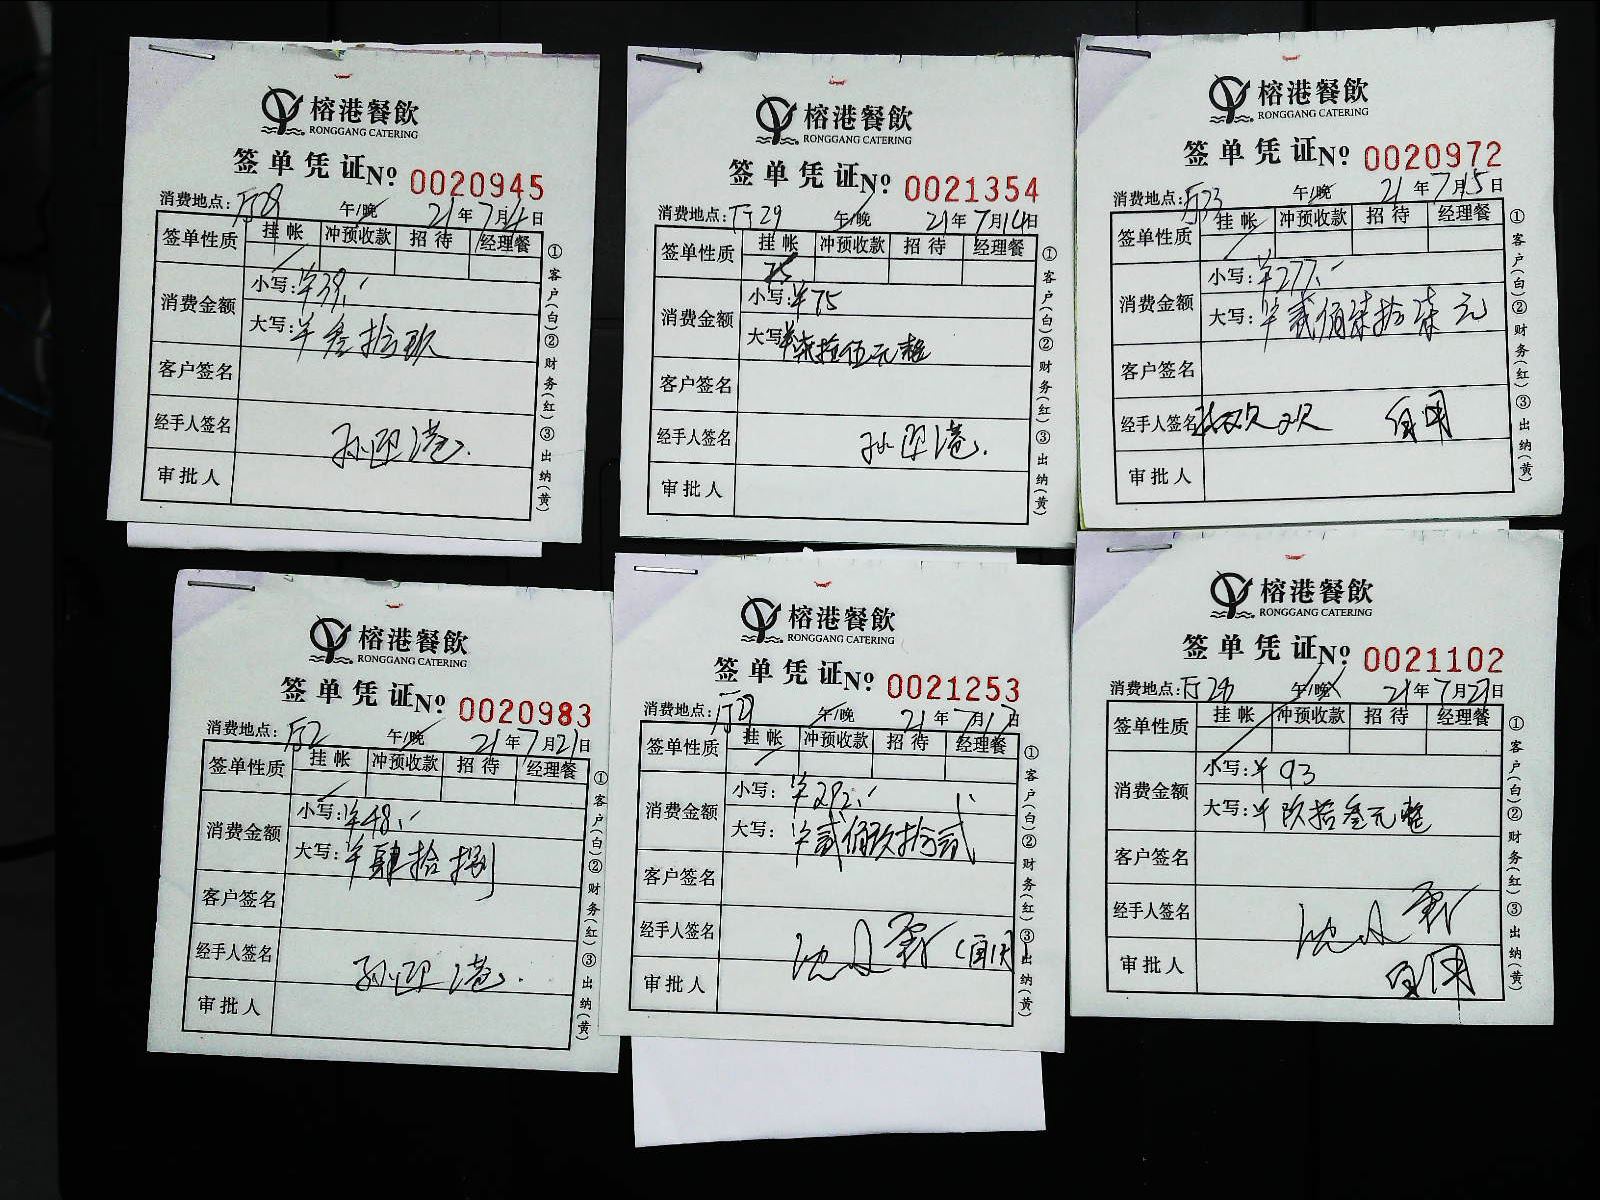 榕港餐飲
RONGGANG CATERING
签单凭证No 0020945
消费地点: 午/晚 21年7月4日
签单性质 挂帐 冲预收款 招待 经理餐
消费金额
小写:¥39.
大写:¥叁拾玖
客户签名
经手人签名
审批人
①客户(白)②财务(红)③出纳(黄)
榕港餐飲
RONGGANG CATERING
签单凭证No 0021354
消费地点:厅29 午/晚 21年7月14日
签单性质 挂帐 冲预收款 招待 经理餐
消费金额
小写:¥75
大写:¥柒拾伍元整
客户签名
经手人签名
审批人
①客户(白)②财务(红)③出纳(黄)
榕港餐飲
RONGGANG CATERING
签单凭证No 0020972
消费地点:厅23 午/晚 21年7月15日
签单性质 挂帐 冲预收款 招待 经理餐
消费金额
小写:¥277.
大写:¥贰佰柒拾柒元
客户签名
经手人签名 自用
审批人
①客户(白)②财务(红)③出纳(黄)
榕港餐飲
RONGGANG CATERING
签单凭证No 0020983
消费地点:厅2 午/晚 21年7月21日
签单性质 挂帐 冲预收款 招待 经理餐
消费金额
小写:¥48.
大写:¥肆拾捌
客户签名
经手人签名
审批人
①客户(白)②财务(红)③出纳(黄)
榕港餐飲
RONGGANG CATERING
签单凭证No 0021253
消费地点: 午/晚 21年7月17日
签单性质 挂帐 冲预收款 招待 经理餐
消费金额
小写:¥292.
大写:¥贰佰玖拾贰
客户签名
经手人签名 (自用)
审批人
①客户(白)②财务(红)③出纳(黄)
榕港餐飲
RONGGANG CATERING
签单凭证No 0021102
消费地点:厅28 午/晚 21年7月27日
签单性质 挂帐 冲预收款 招待 经理餐
消费金额
小写:¥93
大写:¥玖拾叁元整
客户签名
经手人签名
审批人 自用
①客户(白)②财务(红)③出纳(黄)